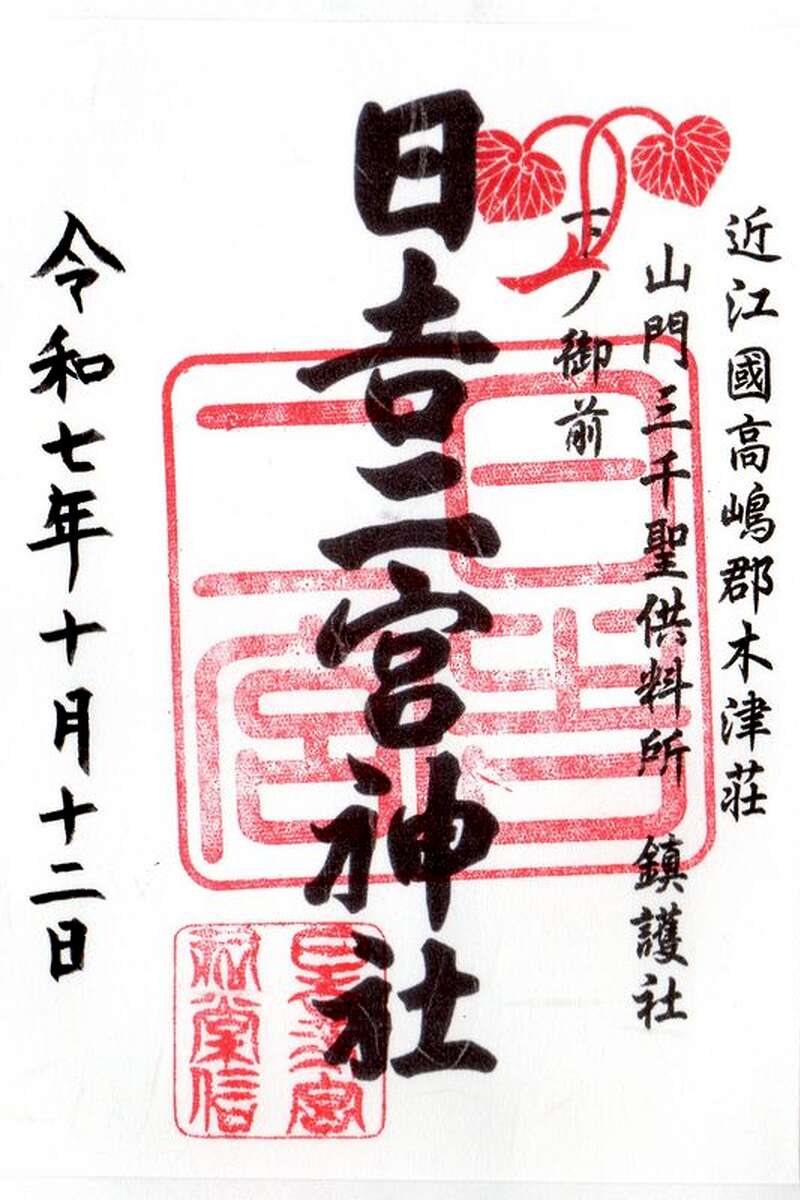 近江國高嶋郡木津荘
山門三千聖供料所 鎮護社
下ノ御前
日吉二宮神社
令和七年十月十二日
日吉二宮